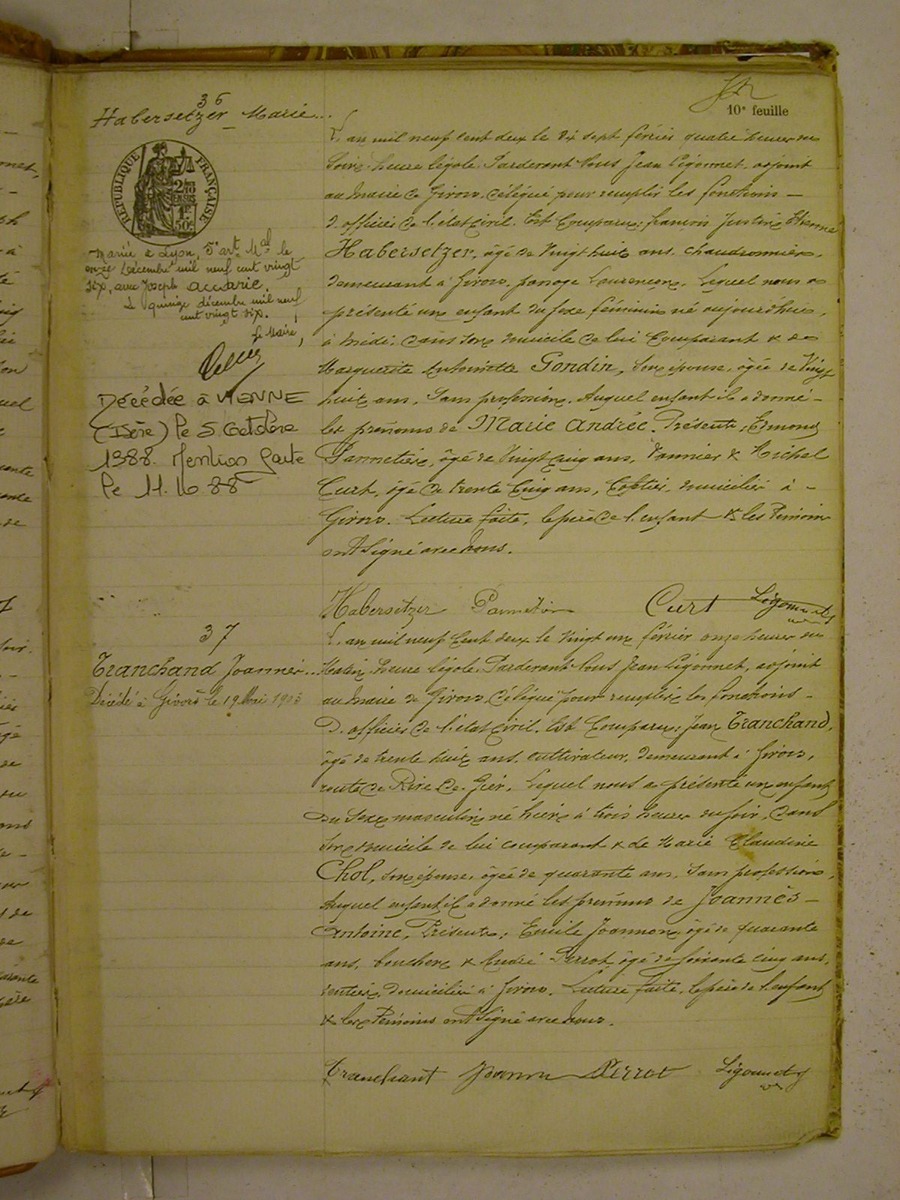 10e feuille
36
Habersetzer Marie
RÉPUBLIQUE FRANÇAISE
Mariée à Lyon, 5e arrt Mal le
onze décembre mil neuf cent vingt
six, avec Joseph Accarie.
Le quinze décembre mil neuf
cent vingt six.
Le Maire,
Décédée à VIENNE
(Isère) le 5 Octobre
1988. Mention faite
le 11.10 88
L'an mil neuf cent deux le dix sept février quatre heures du
soir, heure légale. Pardevant Nous Jean Ligonnet, adjoint
au Maire de Givors, délégué pour remplir les fonctions —
d'officier de l'état civil. Est Comparu: françois Justin Etienne
Habersetzer, âgé de vingt huit ans, chaudronnier,
demeurant à Givors, passage Laurencin. Lequel nous a
présenté un enfant du sexe féminin né aujourd'hui,
à midi, dans son domicile de lui Comparant & de
Marguerite Antoinette Gondin, son épouse, âgée de Vingt
huit ans, Sans profession. Auquel enfant il a donné —
les prénoms de Marie Andrée. Présents, Edmond
Pannetier, âgé de vingt cinq ans, vannier & Michel
Curt, âgé de trente Cinq ans, domiciliés à —
Givors. Lecture faite, le père de l'enfant & les Témoins
ont Signé avec Nous.
Habersetzer Curt Ligonnet
37
Tranchand Joannès
Décédé à Givors le 19 Mai 1903
L'an mil neuf Cent deux le Vingt un février onze heures du
Matin, heure légale. Pardevant Nous Jean Ligonnet, adjoint
au Maire de Givors, délégué pour remplir les fonctions —
d'officier de l'état Civil. Est Comparu: Jean Tranchand,
âgé de trente huit ans, cultivateur, demeurant à Givors,
route de Rive de Gier. Lequel nous a présenté un enfant
du Sexe masculin né hier à trois heures du soir, dans
son domicile de lui comparant & de Marie Claudine
Chol, son épouse, âgée de quarante ans, Sans profession,
Auquel enfant il a donné les prénoms de Joannès —
Antoine. Présents, Emile Joannon, âgé de quarante
ans, boucher & André Perrot, âgé de soixante cinq ans,
rentier, domiciliés à Givors. Lecture faite, le père de l'enfant
& les Témoins ont Signé avec Nous.
Tranchant Perrot Ligonnet